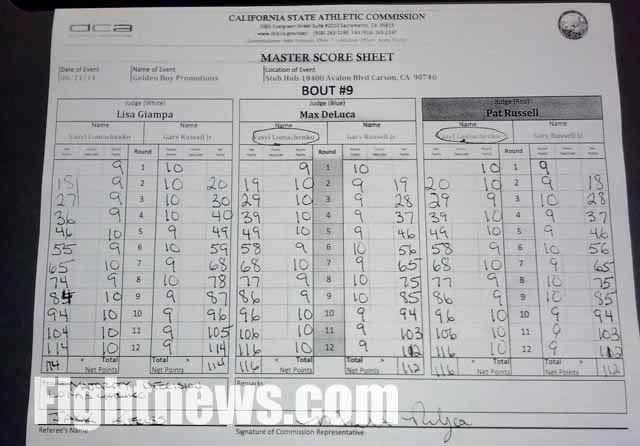 dca
CALIFORNIA STATE ATHLETIC COMMISSION
2005 Evergreen Street Suite #2010 Sacramento, CA 95815
MASTER SCORE SHEET
Date of Event Name of Event Location of Event
Golden Boy Promotions Stub Hub-18400 Avalon Blvd Carson, CA 90746
BOUT #9
Judge (White) Judge (Blue) Judge (Red)
Lisa Giampa Max DeLuca Pat Russell
Name Name Name Name Name Name
Vasyl Lomachenko Gary Russell Jr. Vasyl Lomachenko Gary Russell Jr. Vasyl Lomachenko Gary Russell Jr.
Round Round Round
9 1 10 9 1 10 10 1 9
18 9 2 10 20 19 10 2 9 19 20 10 2 9 18
27 9 3 10 30 29 10 3 9 28 29 9 3 10 28
36 9 4 10 40 39 10 4 9 37 39 10 4 9 37
46 10 5 9 49 49 10 5 9 46 49 10 5 9 46
55 9 6 10 59 58 9 6 10 56 58 9 6 10 56
65 10 7 9 68 68 10 7 9 65 68 10 7 9 65
74 9 8 10 78 77 9 8 10 75 77 9 8 10 75
84 10 9 9 87 86 9 9 10 85 86 9 9 10 85
94 10 10 9 96 96 10 10 9 94 96 10 10 9 94
104 10 11 9 105 106 10 11 9 103 106 10 11 9 103
114 10 12 9 114 116 10 12 9 112 116 10 12 9 112
< Total > < Total > < Total >
114 Net Points 114 116 Net Points 112 116 Net Points 112
Remarks
MAJORITY DECISION
Fightnews.com
Referee's Name Signature of Commission Representative